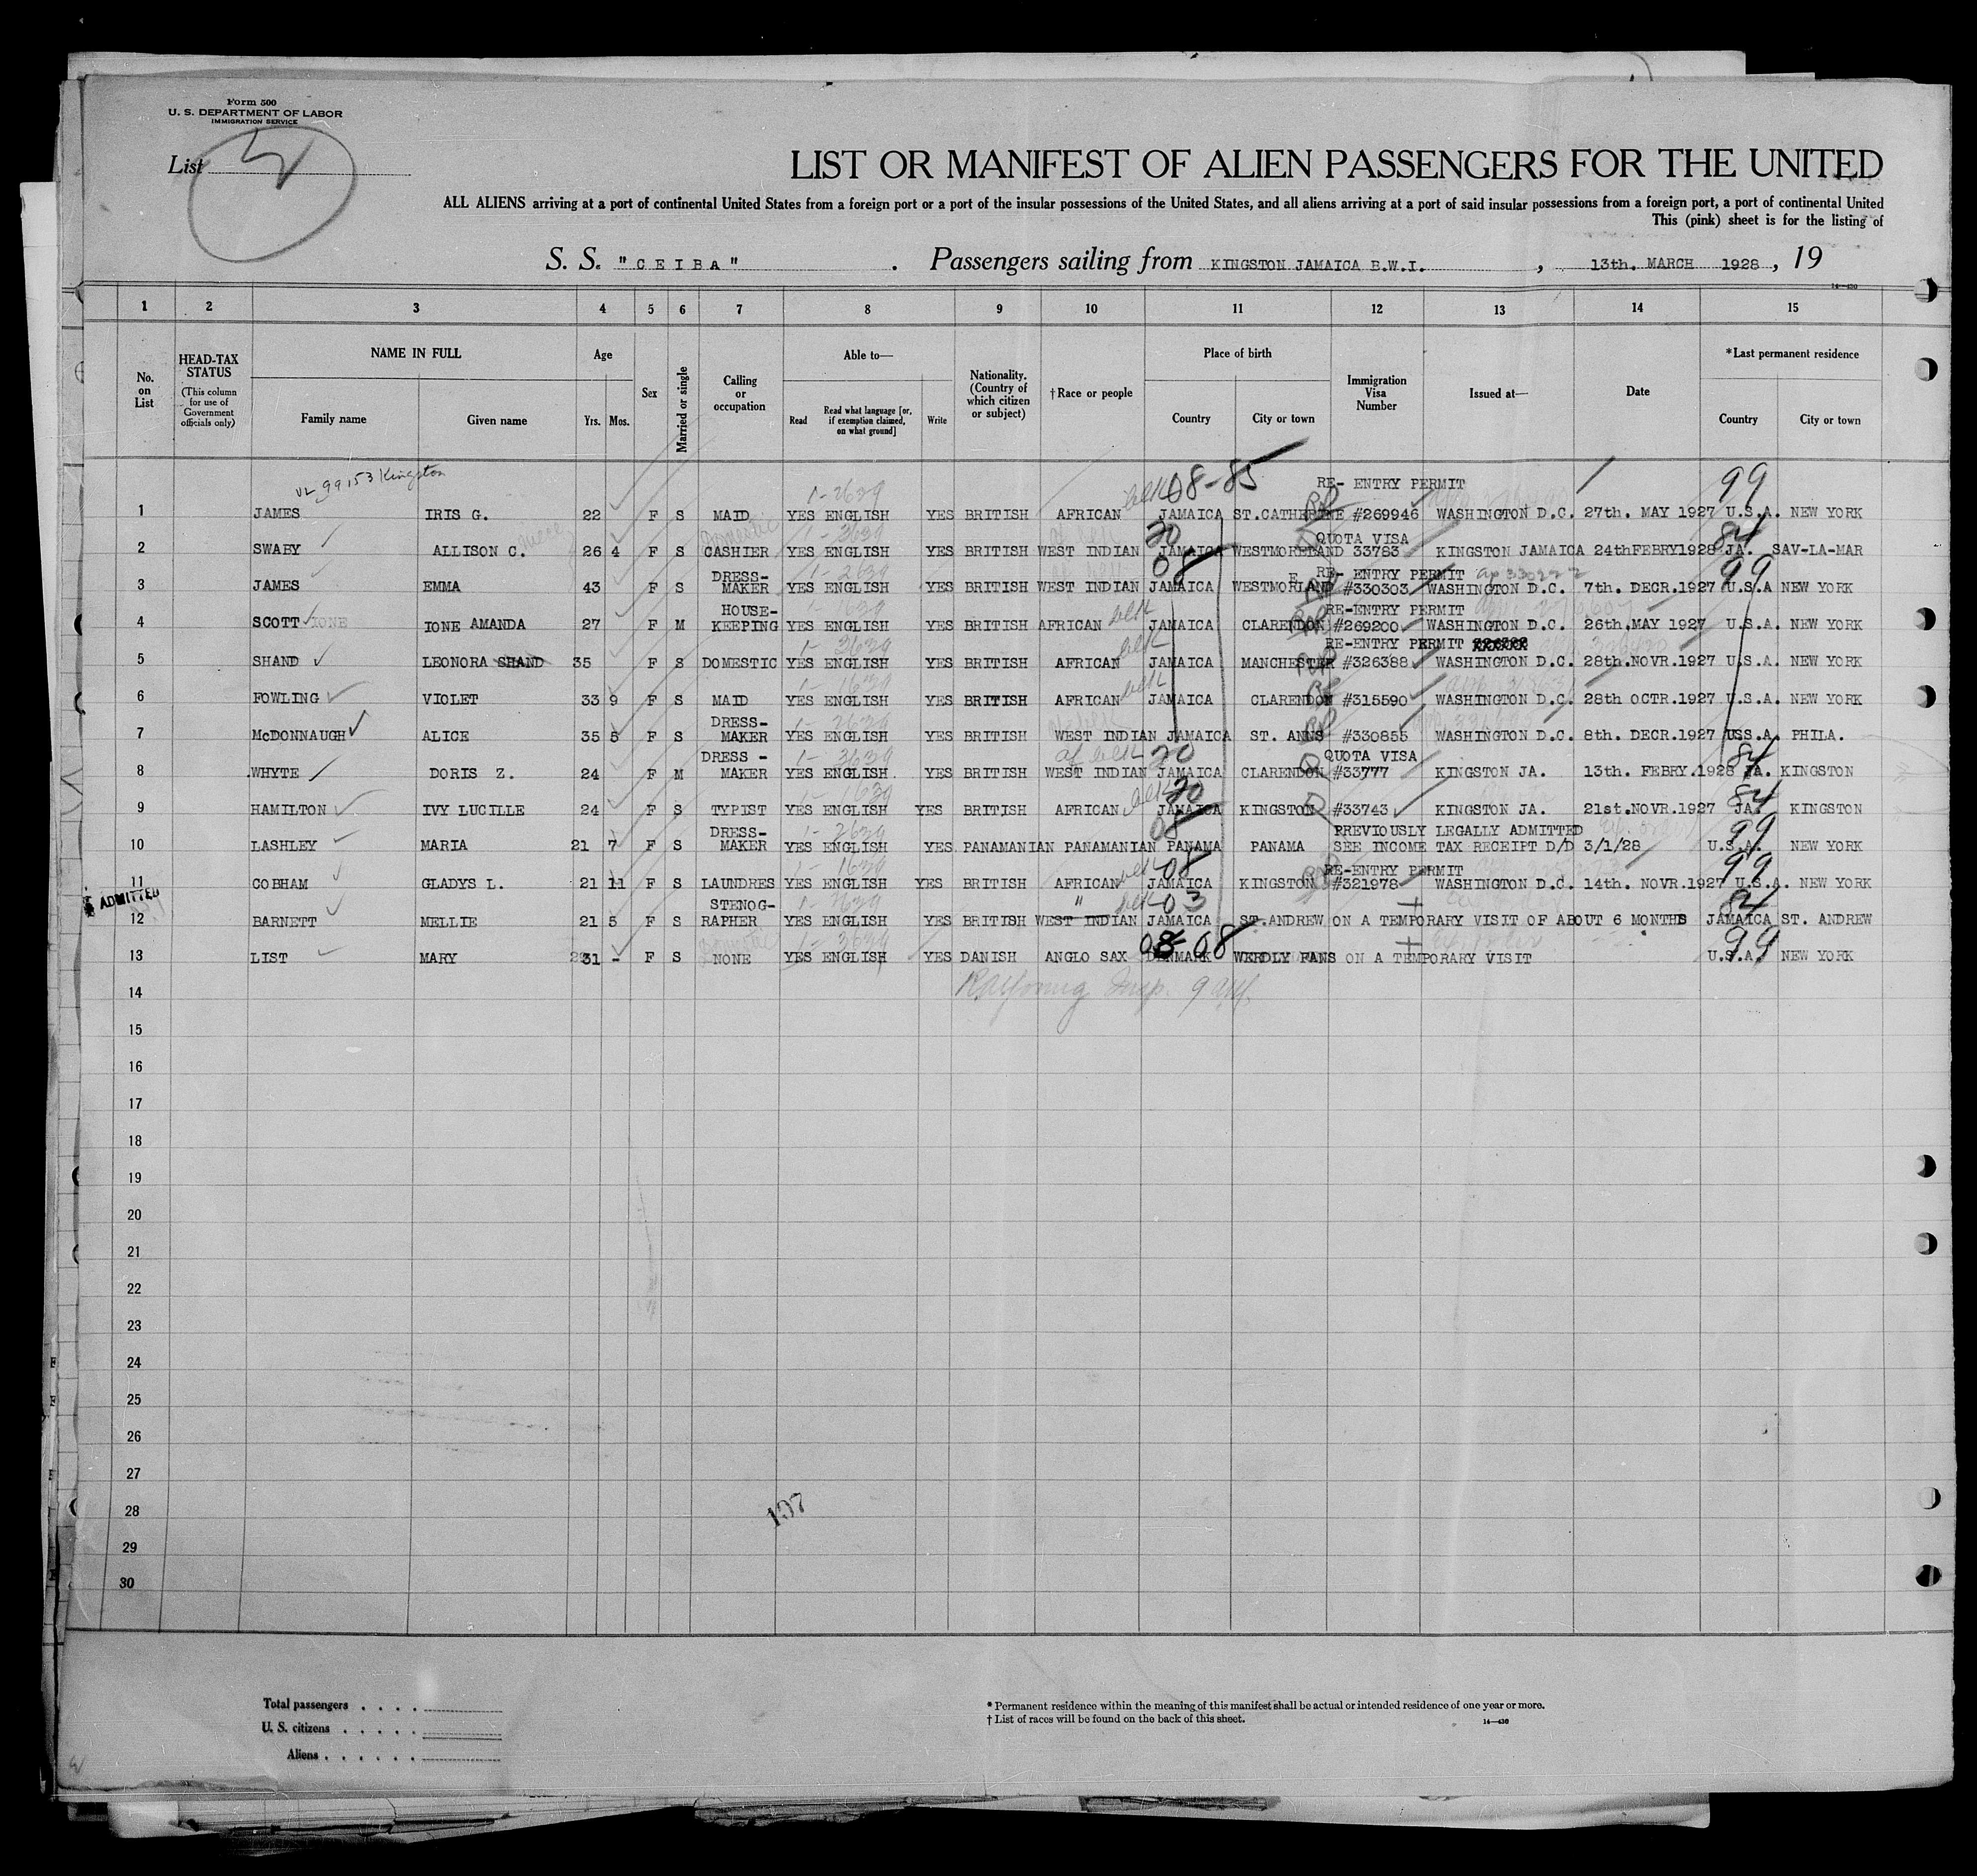 Form 500
U. S. DEPARTMENT OF LABOR
IMMIGRATION SERVICE
List
LIST OR MANIFEST OF ALIEN PASSENGERS FOR THE UNITED
ALL ALIENS arriving at a port of continental United States from a foreign port or a port of the insular possessions of the United States, and all aliens arriving at a port of said insular possessions from a foreign port, a port of continental United
This (pink) sheet is for the listing of
S. S. "CEIBA" . Passengers sailing from KINGSTON JAMAICA B.W.I. , 13th. MARCH 1928 , 19
14—430
1 2 3 4 5 6 7 8 9 10 11 12 13 14 15
No. on List HEAD-TAX STATUS (This column for use of Government officials only) NAME IN FULL Family name Given name Age Yrs. Mos. Sex Married or single Calling or occupation Able to— Read Read what language [or, if exemption claimed, on what ground] Write Nationality. (Country of which citizen or subject) † Race or people Place of birth Country City or town Immigration Visa Number Issued at— Date *Last permanent residence Country City or town
99153 Kingston
1-2629 blk 08-85 RE- ENTRY PERMIT 99
1 JAMES IRIS G. 22 F S MAID YES ENGLISH YES BRITISH AFRICAN JAMAICA ST.CATHERINE #269946 WASHINGTON D.C. 27th. MAY 1927 U.S.A. NEW YORK
Domestic 1-3629 20 QUOTA VISA 84
2 SWABY ALLISON C. 26 4 F S CASHIER YES ENGLISH YES BRITISH WEST INDIAN JAMAICA WESTMORELAND 33783 KINGSTON JAMAICA 24thFEBRY1928 JA. SAV-LA-MAR
DRESS- 1-2629 08 RE- ENTRY PERMIT 99
3 JAMES EMMA 43 F S MAKER YES ENGLISH YES BRITISH WEST INDIAN JAMAICA WESTMORLAND #330303 WASHINGTON D.C. 7th. DECR.1927 U.S.A NEW YORK
HOUSE- 1-1629 blk RE-ENTRY PERMIT
4 SCOTT IONE AMANDA 27 F M KEEPING YES ENGLISH YES BRITISH AFRICAN JAMAICA CLARENDON #269200 WASHINGTON D.C. 26th.MAY 1927 U.S.A. NEW YORK
1-3629 blk RE-ENTRY PERMIT
5 SHAND LEONORA SHAND 35 F S DOMESTIC YES ENGLISH YES BRITISH AFRICAN JAMAICA MANCHESTER #326388 WASHINGTON D.C. 28th.NOVR.1927 U.S.A. NEW YORK
1-1629 blk
6 FOWLING VIOLET 33 9 F S MAID YES ENGLISH YES BRITISH AFRICAN JAMAICA CLARENDON #315590 WASHINGTON D.C. 28th OCTR.1927 U.S.A. NEW YORK
DRESS- 1-2629
7 McDONNAUGH ALICE 35 5 F S MAKER YES ENGLISH YES BRITISH WEST INDIAN JAMAICA ST. ANNS #330855 WASHINGTON D.C. 8th. DECR.1927 U.S.A. PHILA.
DRESS - 1-3629 af blk 20 QUOTA VISA 84
8 WHYTE DORIS Z. 24 F M MAKER YES ENGLISH YES BRITISH WEST INDIAN JAMAICA CLARENDON #33777 KINGSTON JA. 13th. FEBRY.1928 JA. KINGSTON
1-1629 blk 20 84
9 HAMILTON IVY LUCILLE 24 F S TYPIST YES ENGLISH YES BRITISH AFRICAN JAMAICA KINGSTON #33743 KINGSTON JA. 21st.NOVR.1927 JA. KINGSTON
DRESS- 1-2629 08 PREVIOUSLY LEGALLY ADMITTED 99
10 LASHLEY MARIA 21 7 F S MAKER YES ENGLISH YES PANAMANIAN PANAMANIAN PANAMA PANAMA SEE INCOME TAX RECEIPT D/D 3/1/28 U.S.A. NEW YORK
1-1629 blk 08 RE-ENTRY PERMIT 99
11 COBHAM GLADYS L. 21 11 F S LAUNDRES YES ENGLISH YES BRITISH AFRICAN JAMAICA KINGSTON #321978 WASHINGTON D.C. 14th. NOVR.1927 U.S.A. NEW YORK
ADMITTED
STENOG- 1-2629 " blk 03 84
12 BARNETT MELLIE 21 5 F S RAPHER YES ENGLISH YES BRITISH WEST INDIAN JAMAICA ST.ANDREW ON A TEMPORARY VISIT OF ABOUT 6 MONTHS JAMAICA ST. ANDREW
Domestic 1-3629 08 99
13 LIST MARY 31 - F S NONE YES ENGLISH YES DANISH ANGLO SAX DENMARK ON A TEMPORARY VISIT U.S.A. NEW YORK
14
15
16
17
18
19
20
21
22
23
24
25
26
27
28
29
30
107
Total passengers . . . .
U. S. citizens . . . . .
Aliens . . . . . .
* Permanent residence within the meaning of this manifest shall be actual or intended residence of one year or more.
† List of races will be found on the back of this sheet.
14—430